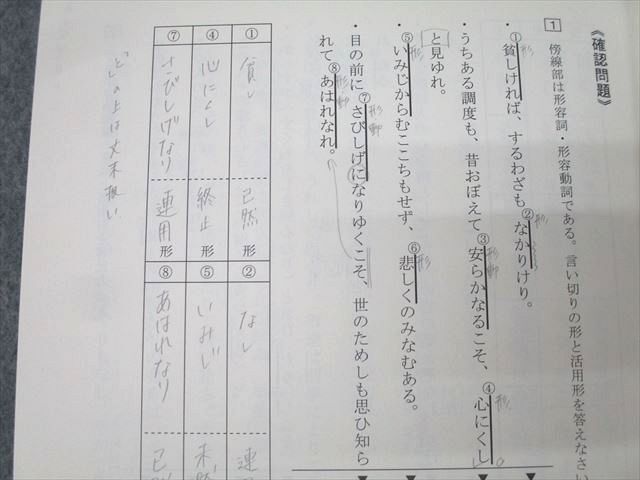 《確認問題》
1 傍線部は形容詞・形容動詞である。言い切りの形と活用形を答えなさい
・①貧しければ、するわざも②なかりけり。
形 形
・うちある調度も、昔おぼえて③安らかなるこそ、④心にくし
形動 形
と見ゆれ。
・⑤いみじからむここちもせず、⑥悲しくのみなむある。
形 形
・目の前に⑦さびしげになりゆくこそ、世のためしも思ひ知ら
形動
れて⑧あはれなれ。
形動
① 貧し 已然形
② なし 連
④ 心にくし 終止形
⑤ いみじ 未
⑦ さびしげなり 連用形
⑧ あはれなり 已
「と」の上は文末扱い